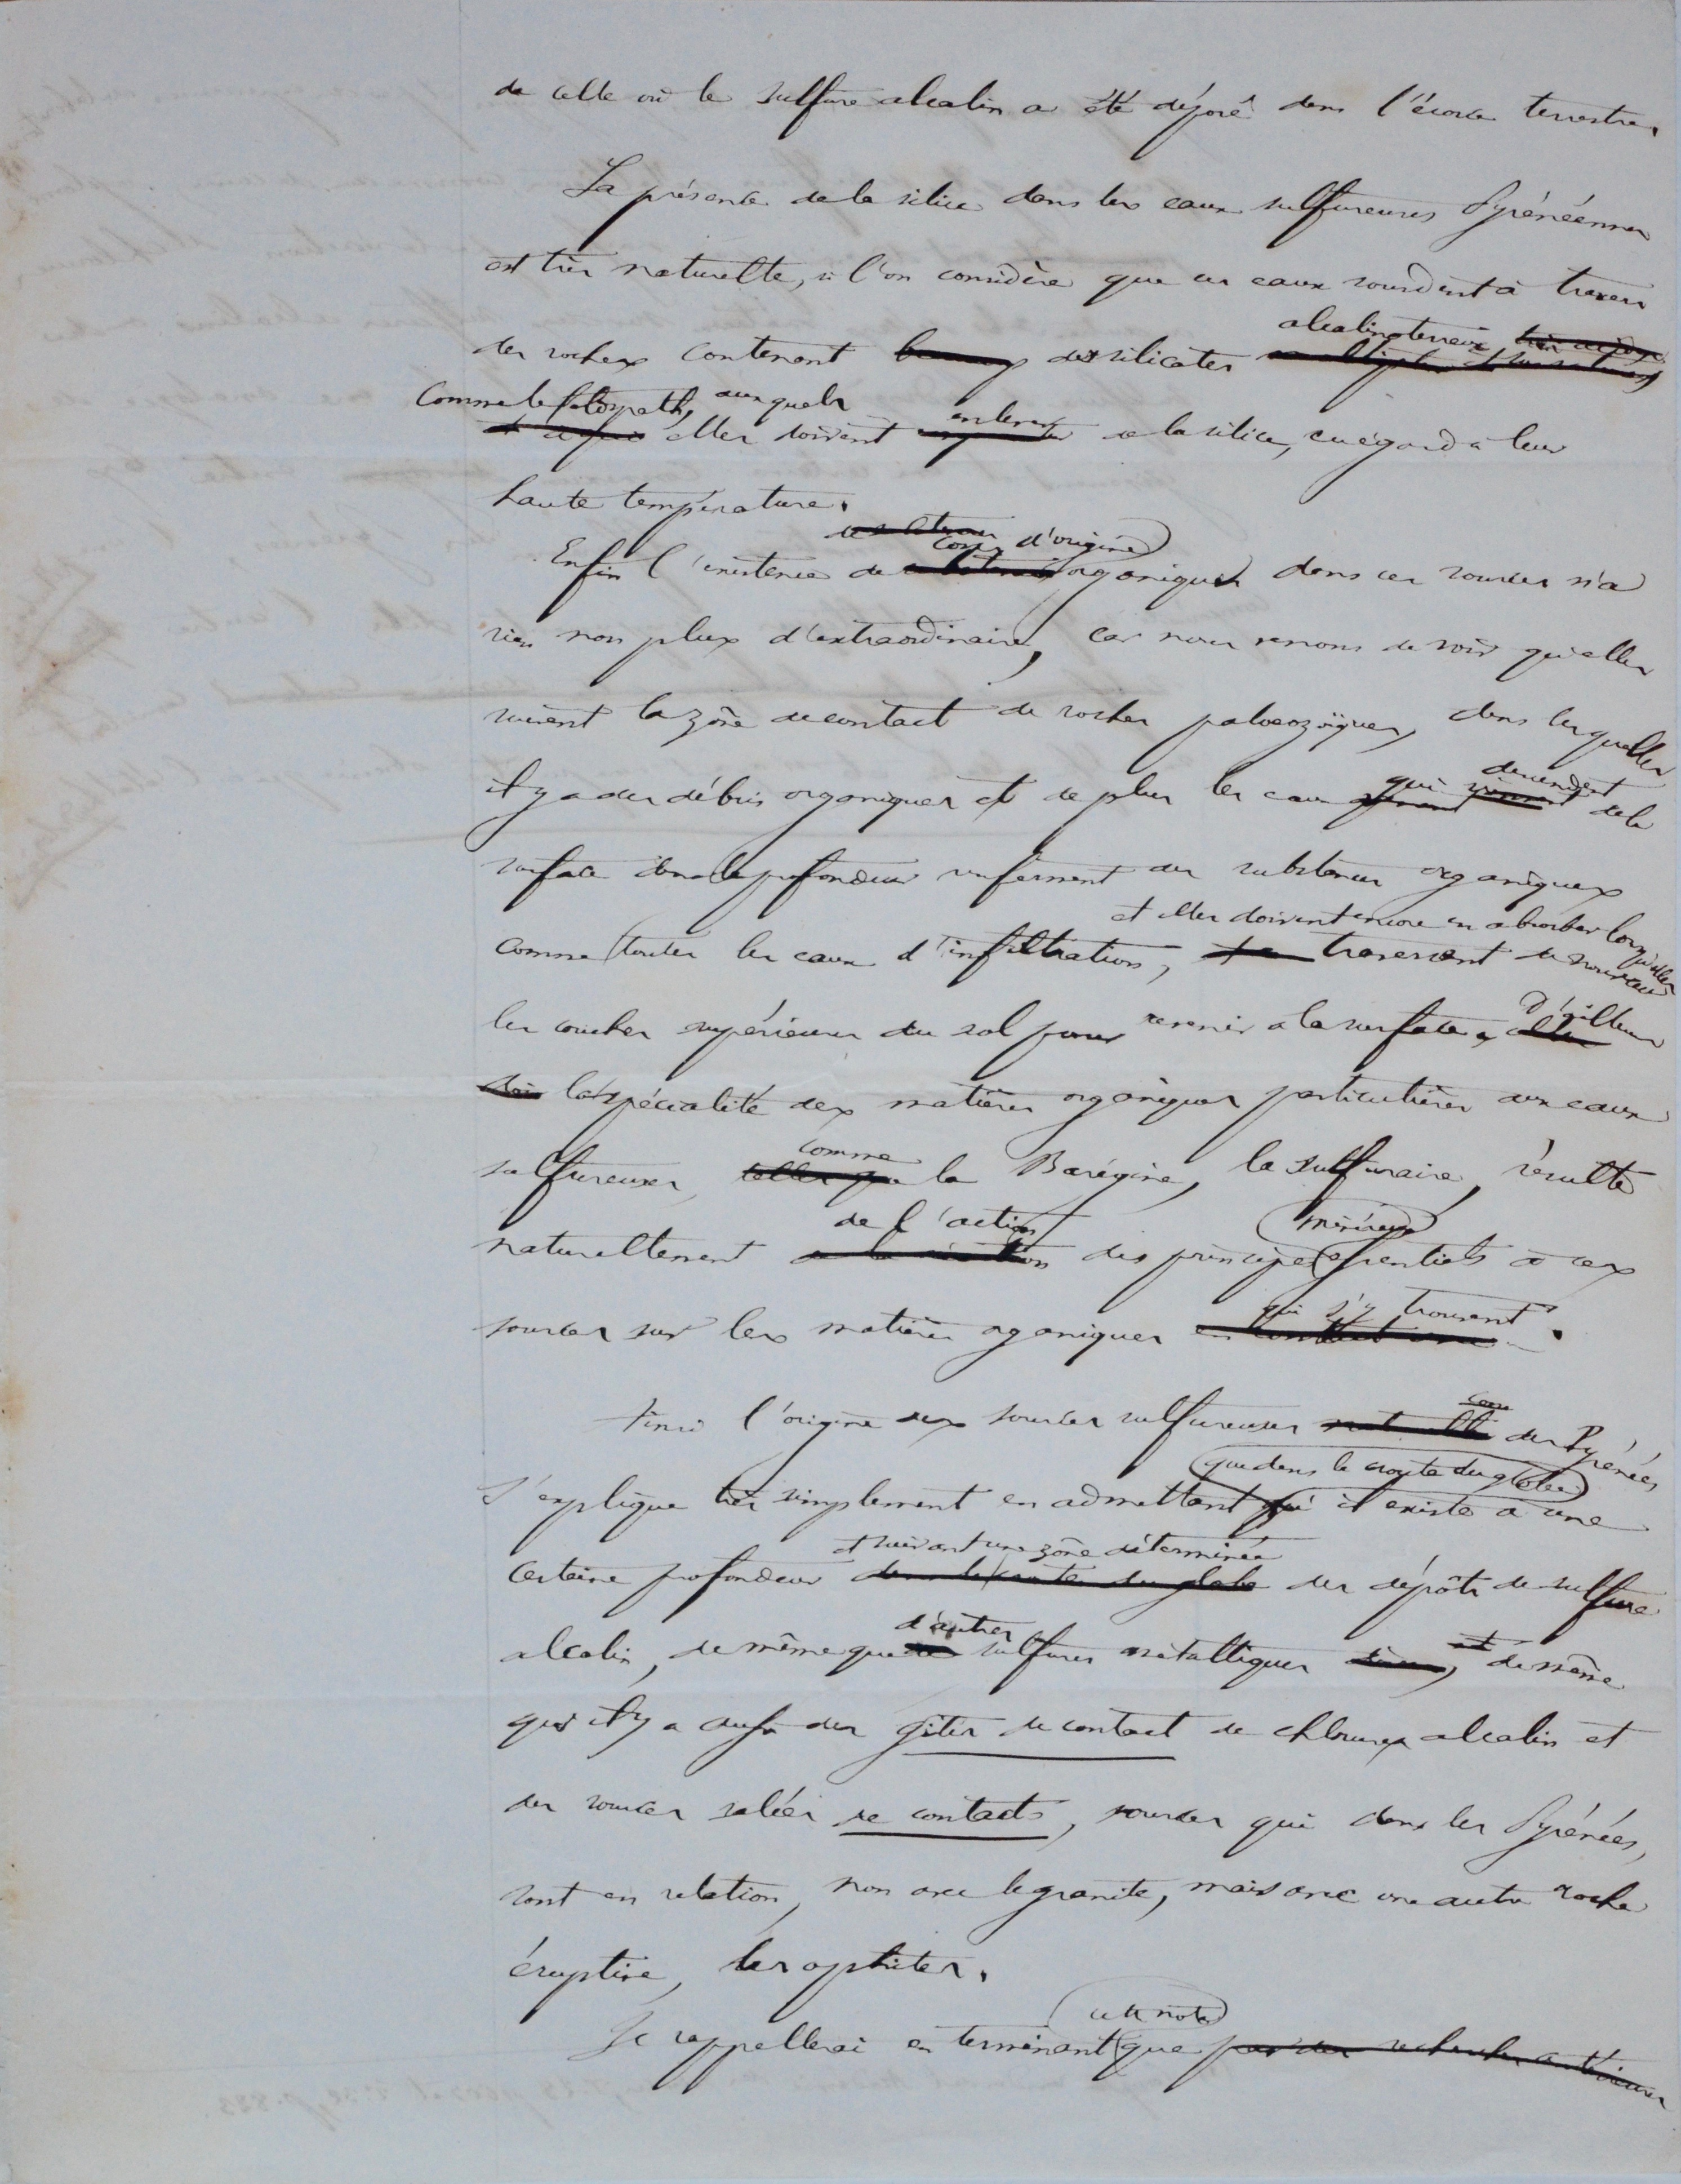 de celle où le sulfure alcalin a été déposé dans l'écorce terrestre.
La présence de la silice dans les eaux sulfureuses Pyrénéennes
est très naturelle, si l'on considère que ces eaux sourdent à travers
alcalino terreux très acides
des roches contenant beaucoup des silicates
comme le feldspath, auxquels enlever
elles doivent de la silice, eu égard à leur
haute température.
corps d'origine
Enfin l'existence de organique dans ces sources n'a
rien non plus d'extraordinaire, car nous venons de voir qu'elles
suivent la zône de contact de roches paloeozoïques, dans lesquelles
qui descendent
il y a des débris organiques et de plus les eaux viennent de la
surface dans la profondeur renferment des substances organiques
et elles doivent encore en absorber lorsqu'elles
comme toutes les eaux d'infiltration, traversent de nouveau
les couches supérieures du sol pour revenir à la surface, D'ailleurs
la spécialité des matières organiques particulières aux eaux
comme
sulfureuses, telles que la Barégine, la sulfuraire, résulte
de l'action minéraux
naturellement des principes essentiels à ces
qui s'y trouvent
sources sur les matières organiques en contact avec.
Ainsi l'origine des sources sulfureuses des Pyrénées
que dans la croute du globe
s'explique très simplement en admettant qu' il existe à une
et suivant une zône déterminée
certaine profondeur dans la croute du globe des dépôts de sulfure
d'autres et
alcalin, de même que de sulfures métalliques de même
qu'il y a aussi des gîtes de contact de chlorures alcalin et
des sources salées de contacts, sources qui dans les Pyrénées,
sont en relation, non avec le granite, mais avec une autre roche
éruptive, les ophites.
cette note
Je rappellerai en terminant que par des recherches antérieures